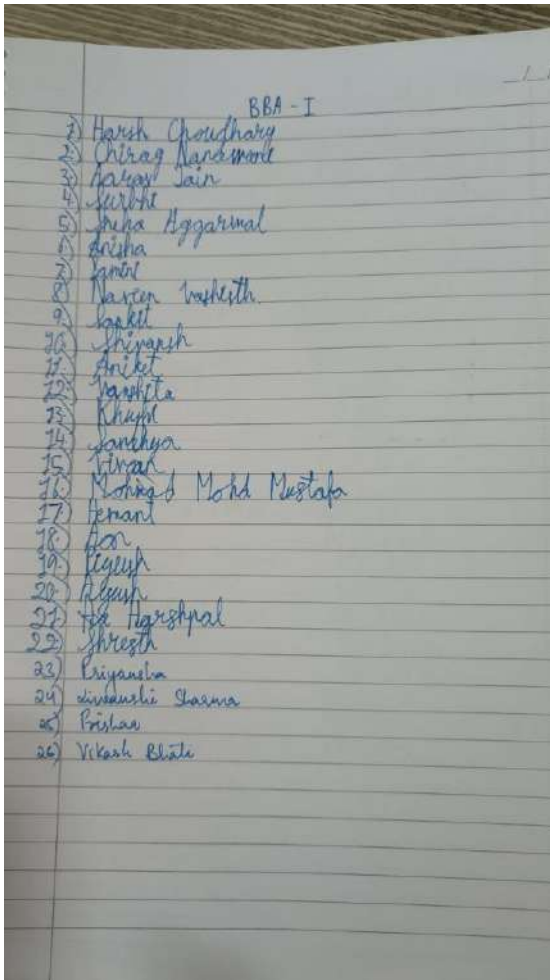 BBA - I
1) Harsh Choudhary
2) Chirag
3) Aarav Jain
4) Surbhi
5) Sneha Aggarwal
6) Anisha
7)
8) Naveen Vashisth
9) Sanket
10) Shivansh
11) Aniket
12) Vanshita
13) Khushi
14) Sandhya
15)
16) Mohd Mustafa
17) Hemant
18)
19) Piyush
20) Ayush
21) Harshpal
22) Shresth
23) Priyansha
24) Sharma
25)
26) Vikash Bhati